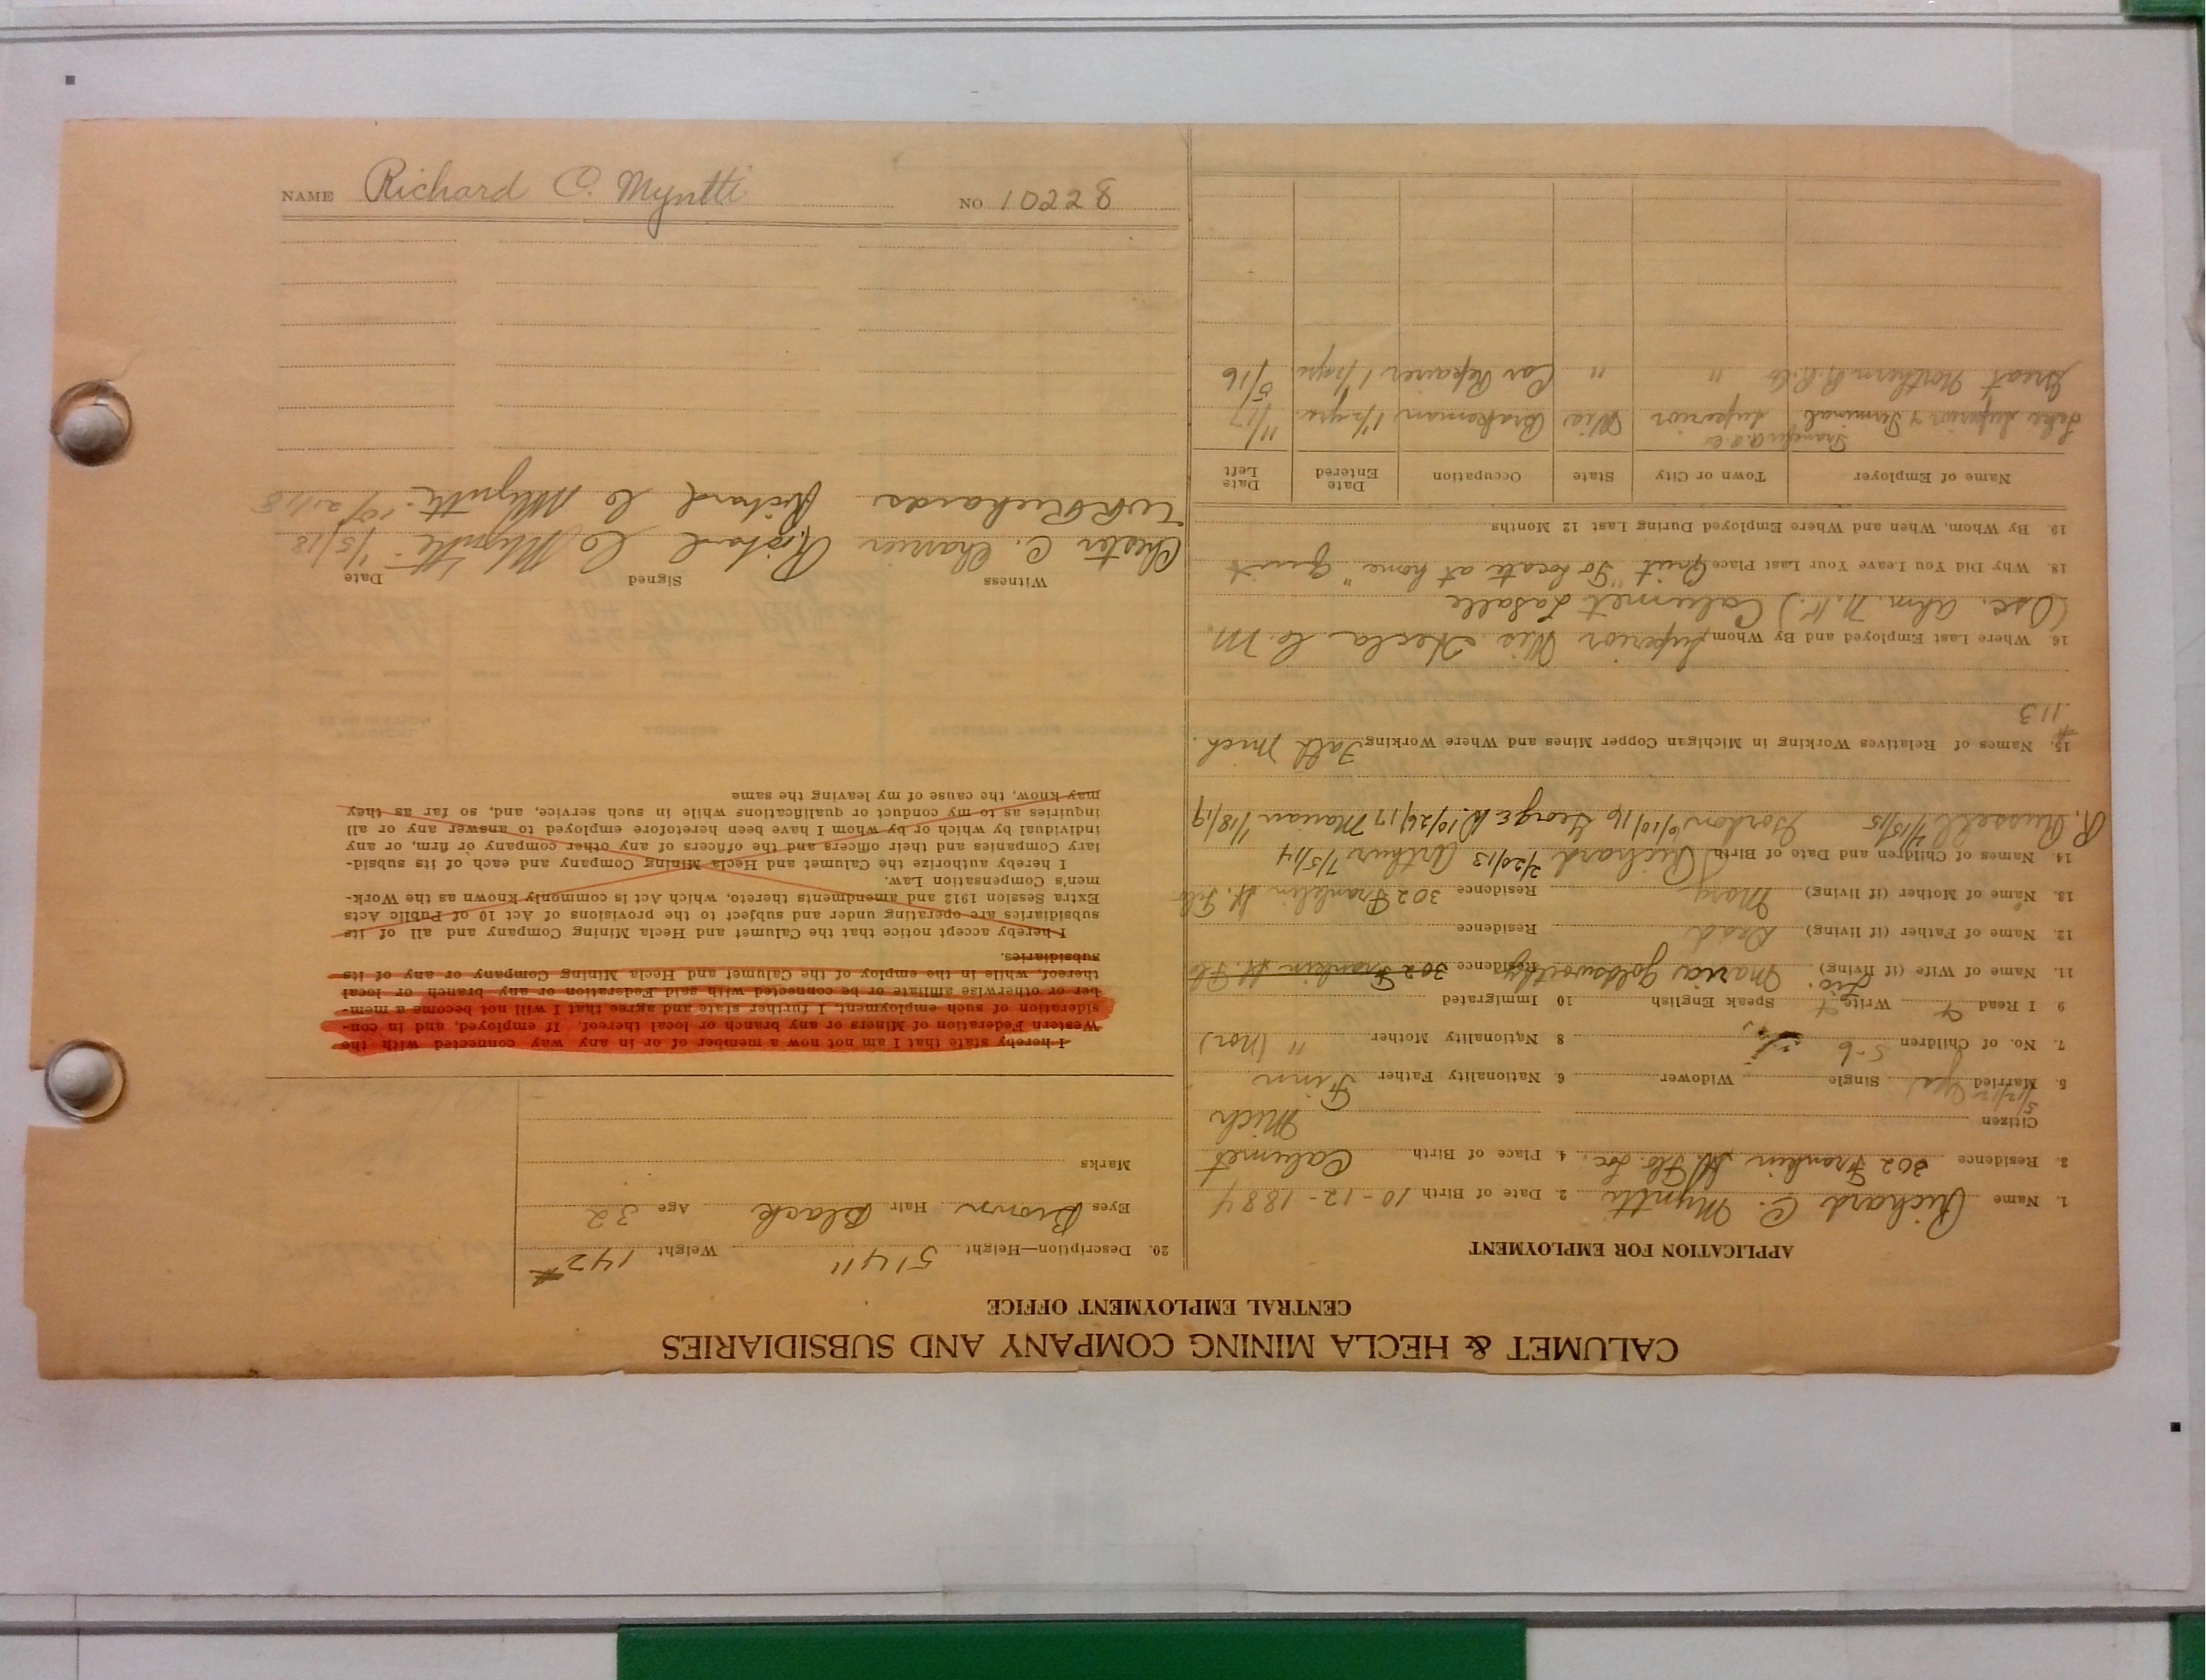 NAME Richard C. Myntti NO 10228
CALUMET & HECLA MINING COMPANY AND SUBSIDIARIES
CENTRAL EMPLOYMENT OFFICE
APPLICATION FOR EMPLOYMENT
1. Name Richard C. Myntti 2. Date of Birth 10-12-1884
3. Residence 302 Franklin St. Flo. Loc. 4. Place of Birth Calumet
Citizen Mich
5/12/12
5. Married Yes Single Widower 6. Nationality Father Finn
7. No. of Children 5-6 8 Nationality Mother " (nor)
9 I Read Write Speak English 10 Immigrated
11. Name of Wife (if living) Maria Goldsworthy Residence 302 Franklin St. Flo
12. Name of Father (if living) Dead Residence
13. Name of Mother (if living) Mary Residence 302 Franklin St. Flo
14. Names of Children and Date of Birth Richard 2/20/13 Arthur 7/5/14
R. Russell 4/15/15 Gordon 6/10/16 George W. 10/26/17 Marian 1/18/19
15. Names of Relatives Working in Michigan Copper Mines and Where Working Mich.
113
16. Where Last Employed and By Whom Superior Wis. Hecla C. M.
(Osc. Ahm. N.K.) Calumet LaSalle
18. Why Did You Leave Your Last Place Quit "To locate at home" Quit
19. By Whom, When and Where Employed During Last 12 Months
Name of Employer Town or City State Occupation Date Entered Date Left
Transfer R.R Co
Lake Superior & Terminal Superior Wis Brakeman 1 1/2 yrs 11/17
Great Northern R.R. Co " " Car Repairer 1 1/2 yrs 5/16
20. Description—Height 5'4" Weight 142#
Eyes Brown Hair Black Age 32
Marks
I hereby state that I am not now a member of or in any way connected with the
Western Federation of Miners or any branch or local thereof. If employed, and in con-
sideration of such employment, I further state and agree that I will not become a mem-
ber or otherwise affiliate or be connected with said Federation or any branch or local
thereof, while in the employ of the Calumet and Hecla Mining Company or any of its
subsidiaries.
I hereby accept notice that the Calumet and Hecla Mining Company and all of its
subsidiaries are operating under and subject to the provisions of Act 10 of Public Acts
Extra Session 1912 and amendments thereto, which Act is commonly known as the Work-
men's Compensation Law.
I hereby authorize the Calumet and Hecla Mining Company and each of its subsid-
iary Companies and their officers and the officers of any other company or firm, or any
individual by which or by whom I have been heretofore employed to answer any or all
inquiries as to my conduct or qualifications while in such service, and, so far as they
may know, the cause of my leaving the same
Witness Signed Date
Chester C. Charrier Richard C Myntti 1/5/18
W R Richards Richard C Myntti 10/21/18